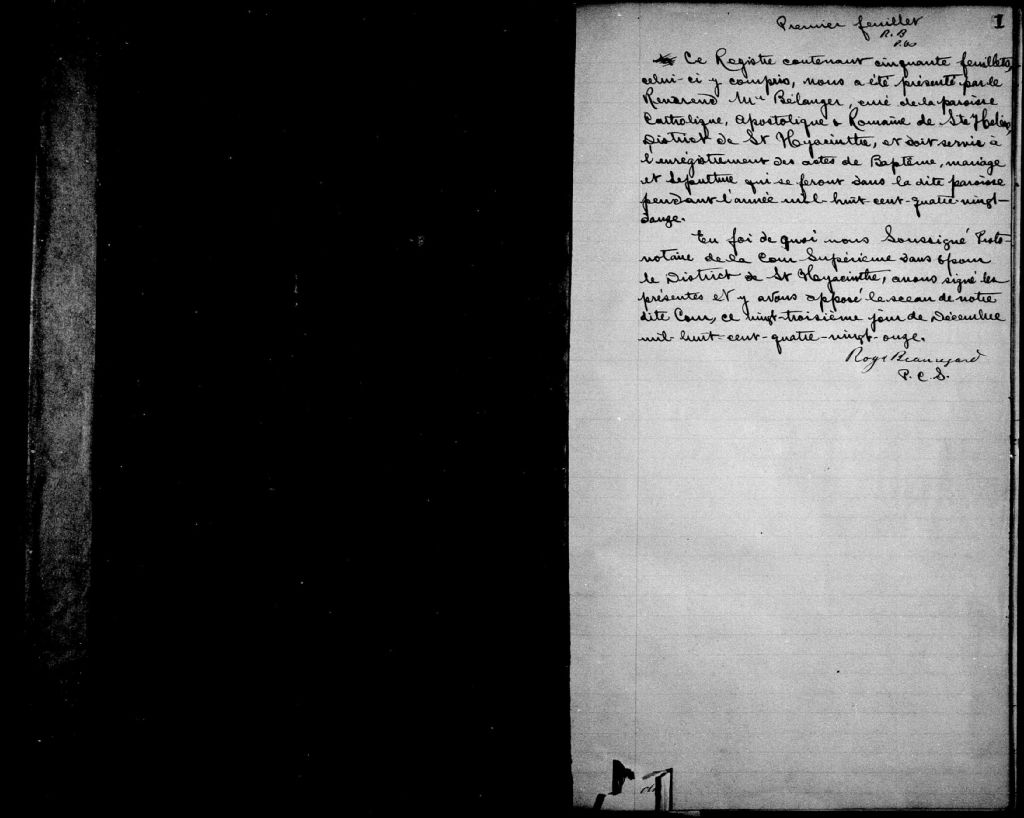 Premier feuillet
1
R. B
P.CS
Ce Registre contenant cinquante feuillets,
celui-ci y compris, nous a été présenté par le
Révérend Mr Bélanger, curé de la paroisse
Catholique, Apostolique & Romaine de Ste Hélène,
District de St Hyacinthe, et doit servir à
l'enrégistrement des actes de Baptême, mariage
et Sépulture qui se feront dans la dite paroisse
pendant l'année mil-huit-cent-quatre-vingt-
douze.
En foi de quoi nous Soussigné Proto-
notaire de la Cour Supérieure dans & pour
le District de St Hyacinthe, avons signé les
présentes et y avons apposé le sceau de notre
dite Cour, ce vingt-troisième jour de Décembre
mil-huit-cent-quatre-vingt-onze.
Roy & Beauregard
P. C. S.